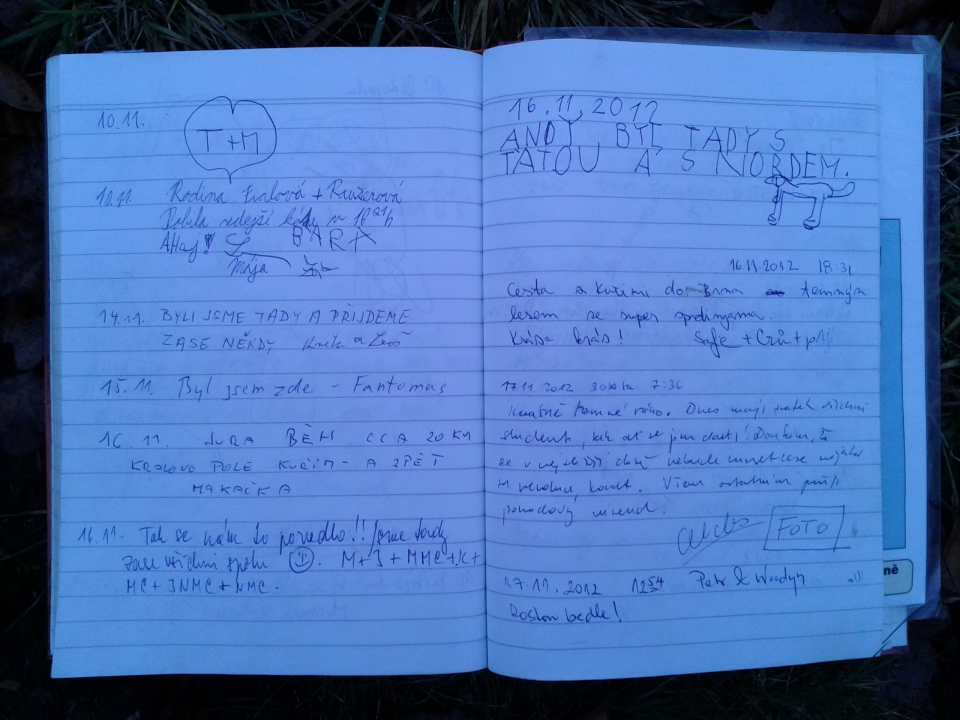 10.11.
T+M
10.11. Rodina + 
zdejší v
Ahoj! BÁRA
Mája
14.11. BYLI JSME TADY A PŘIJDEME
ZASE NĚKDY Květa a
15.11. Byl jsem zde - Fantomas
16.11. JURA BĚH CCA 20 KM
KRÁLOVO POLE KUŘIM - A ZPĚT
MAKAČKA
16.11. Tak se nám to povedlo!! Jsme tady
zase všichni spolu M+J+MMC+K+
MC+JNMC+NMC.
16.11.2012
ANDY BYL TADY S
TÁTOU A S NORDEM.
16.11.2012 18:31
Cesta z Kuřimi do Brna temným
lesem se super
Krása krás!
17.11.2012 Sobota 7:36
temné ráno. Dnes mají svátek všichni
studenti, tak ať se jim daří! Doufám, že
se v nebude
revoluce, konat. Všem ostatním přeji
pohodový víkend.
FOTO
17.11.2012 12:54 Petr & Woodyn
Rostou bedle!
ně